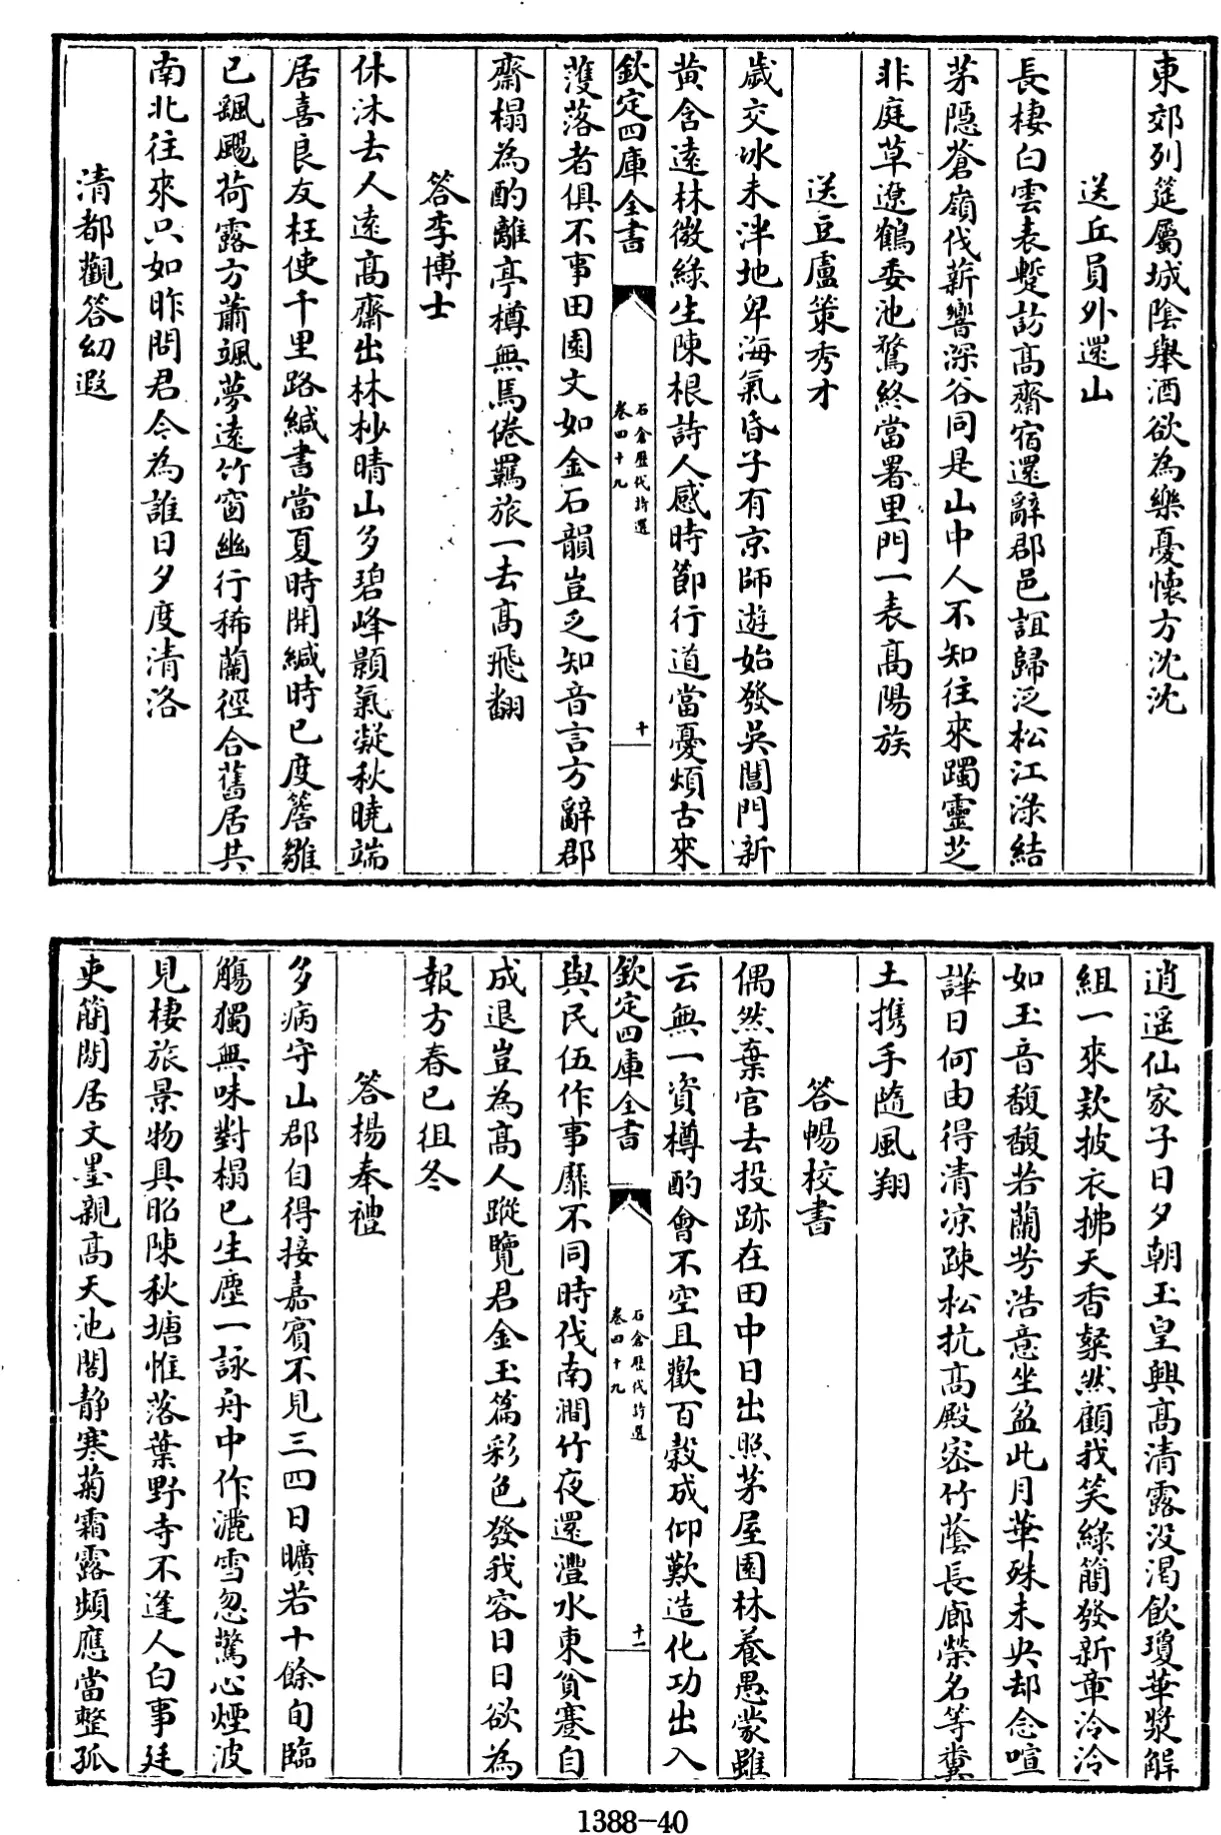 東郊列筵屬城陰舉酒欲為樂憂懷方沈沈
送丘員外還山
長棲白雲表蹔訪高齋宿還辭郡邑諠歸泛松江淥結
茅隠蒼嶺伐薪響深谷同是山中人不知往來躅靈芝
非庭草遼鶴委池鶩終當署里門一表高陽族
送豆盧策秀才
歲交冰未泮地卑海氣昏子有京師遊始發吳閶門新
黄含遠林微綠生陳根詩人感時節行道當憂煩古來
欽定四庫全書
石倉歷代詩選
卷四十九
十
濩落者俱不事田園文如金石韻豈乏知音言方辭郡
齋榻為酌離亭樽無馬倦羈旅一去高飛翻
答李博士
休沐去人遠高齋出林杪晴山多碧峰顥氣凝秋曉端
居喜良友枉使千里路緘書當夏時開緘時已度簷雛
已颻颺荷露方蕭颯夢遠竹窗幽行稀蘭徑合舊居共
南北往來只如昨問君今為誰日夕度清洛
清都觀答幼遐
逍遥仙家子日夕朝玉皇興高清露没渴飲瓊華漿解
組一來欵披衣拂天香粲然顧我笑綠簡發新章泠泠
如玉音馥馥若蘭芳浩意坐盈此月華殊未央却念喧
譁日何由得清凉疎松抗高殿密竹蔭長廊榮名等糞
土携手隨風翔
答暢校書
偶然棄官去投跡在田中日出照茅屋園林養愚蒙雖
云無一資樽酌會不空且歡百榖成仰歎造化功出入
欽定四庫全書
石倉歷代詩選
卷四十九
十一
與民伍作事靡不同時伐南澗竹夜還灃水東貧蹇自
成退豈為高人蹤覽君金玉篇彩色發我容日日欲為
報方春已徂冬
答楊奉禮
多病守山郡自得接嘉賓不見三四日曠若十餘旬臨
觴獨無味對榻已生塵一詠舟中作灑雪忽驚心煙波
見棲旅景物具昭陳秋塘惟落葉野寺不逢人白事廷
吏簡閒居文墨親高天池閣静寒菊霜露頻應當整孤
1388-40